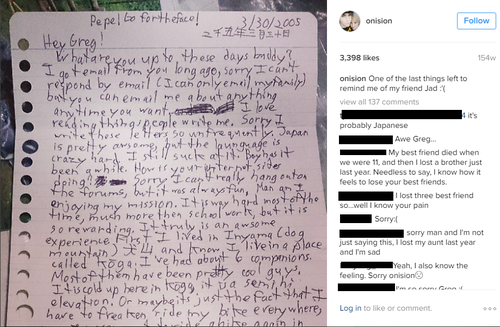 Pepel go for the face! 3/30/2005
二千五年三月三十日
Hey Greg!
What are you up to these days buddy?
I got email from you long ago, sorry I can't
respond by email (I can only email my family)
but you can email me about anything
any time you want, I love
reading thing people write me. Sorry I
write those letters so unfrequently. Japan
is pretty awsome, but the launguage is
crazy hard, I still suck at it. Boy has it
been awhile. How is your internet sides
going? Sorry I can't really hang on to
the forums, but it was always fun, Man am I
enjoying my mission. It is way hard most of the
time, much more then school work, but it is
so rewarding. It truly is an awsome
experience. First I lived in Inyama (dog
mountain) 犬山 and know, I live in a place
called Koga. I've had about 6 companions.
Most of them have been pretty cool guys,
It is cold up here in Koga, it is a semi hi
elevation. Or maybe its just the fact that I
have to freaken ride my bike everywhere,
again in
onision
Follow
3,398 likes
154w
onision One of the last things left to
remind me of my friend Jad :'(
view all 137 comments
4 it's
probably Japanese
Awe Greg...
My best friend died when
we were 11, and then I lost a brother just
last year. Needless to say, I know how it
feels to lose your best friends.
I lost three best friend
so...well I know your pain
Sorry:(
sorry man and I'm not
just saying this, I lost my aunt last year
and I'm sad
Yeah, I also know the
feeling. Sorry onision
I'm so sorry Greg :(
Log in to like or comment.